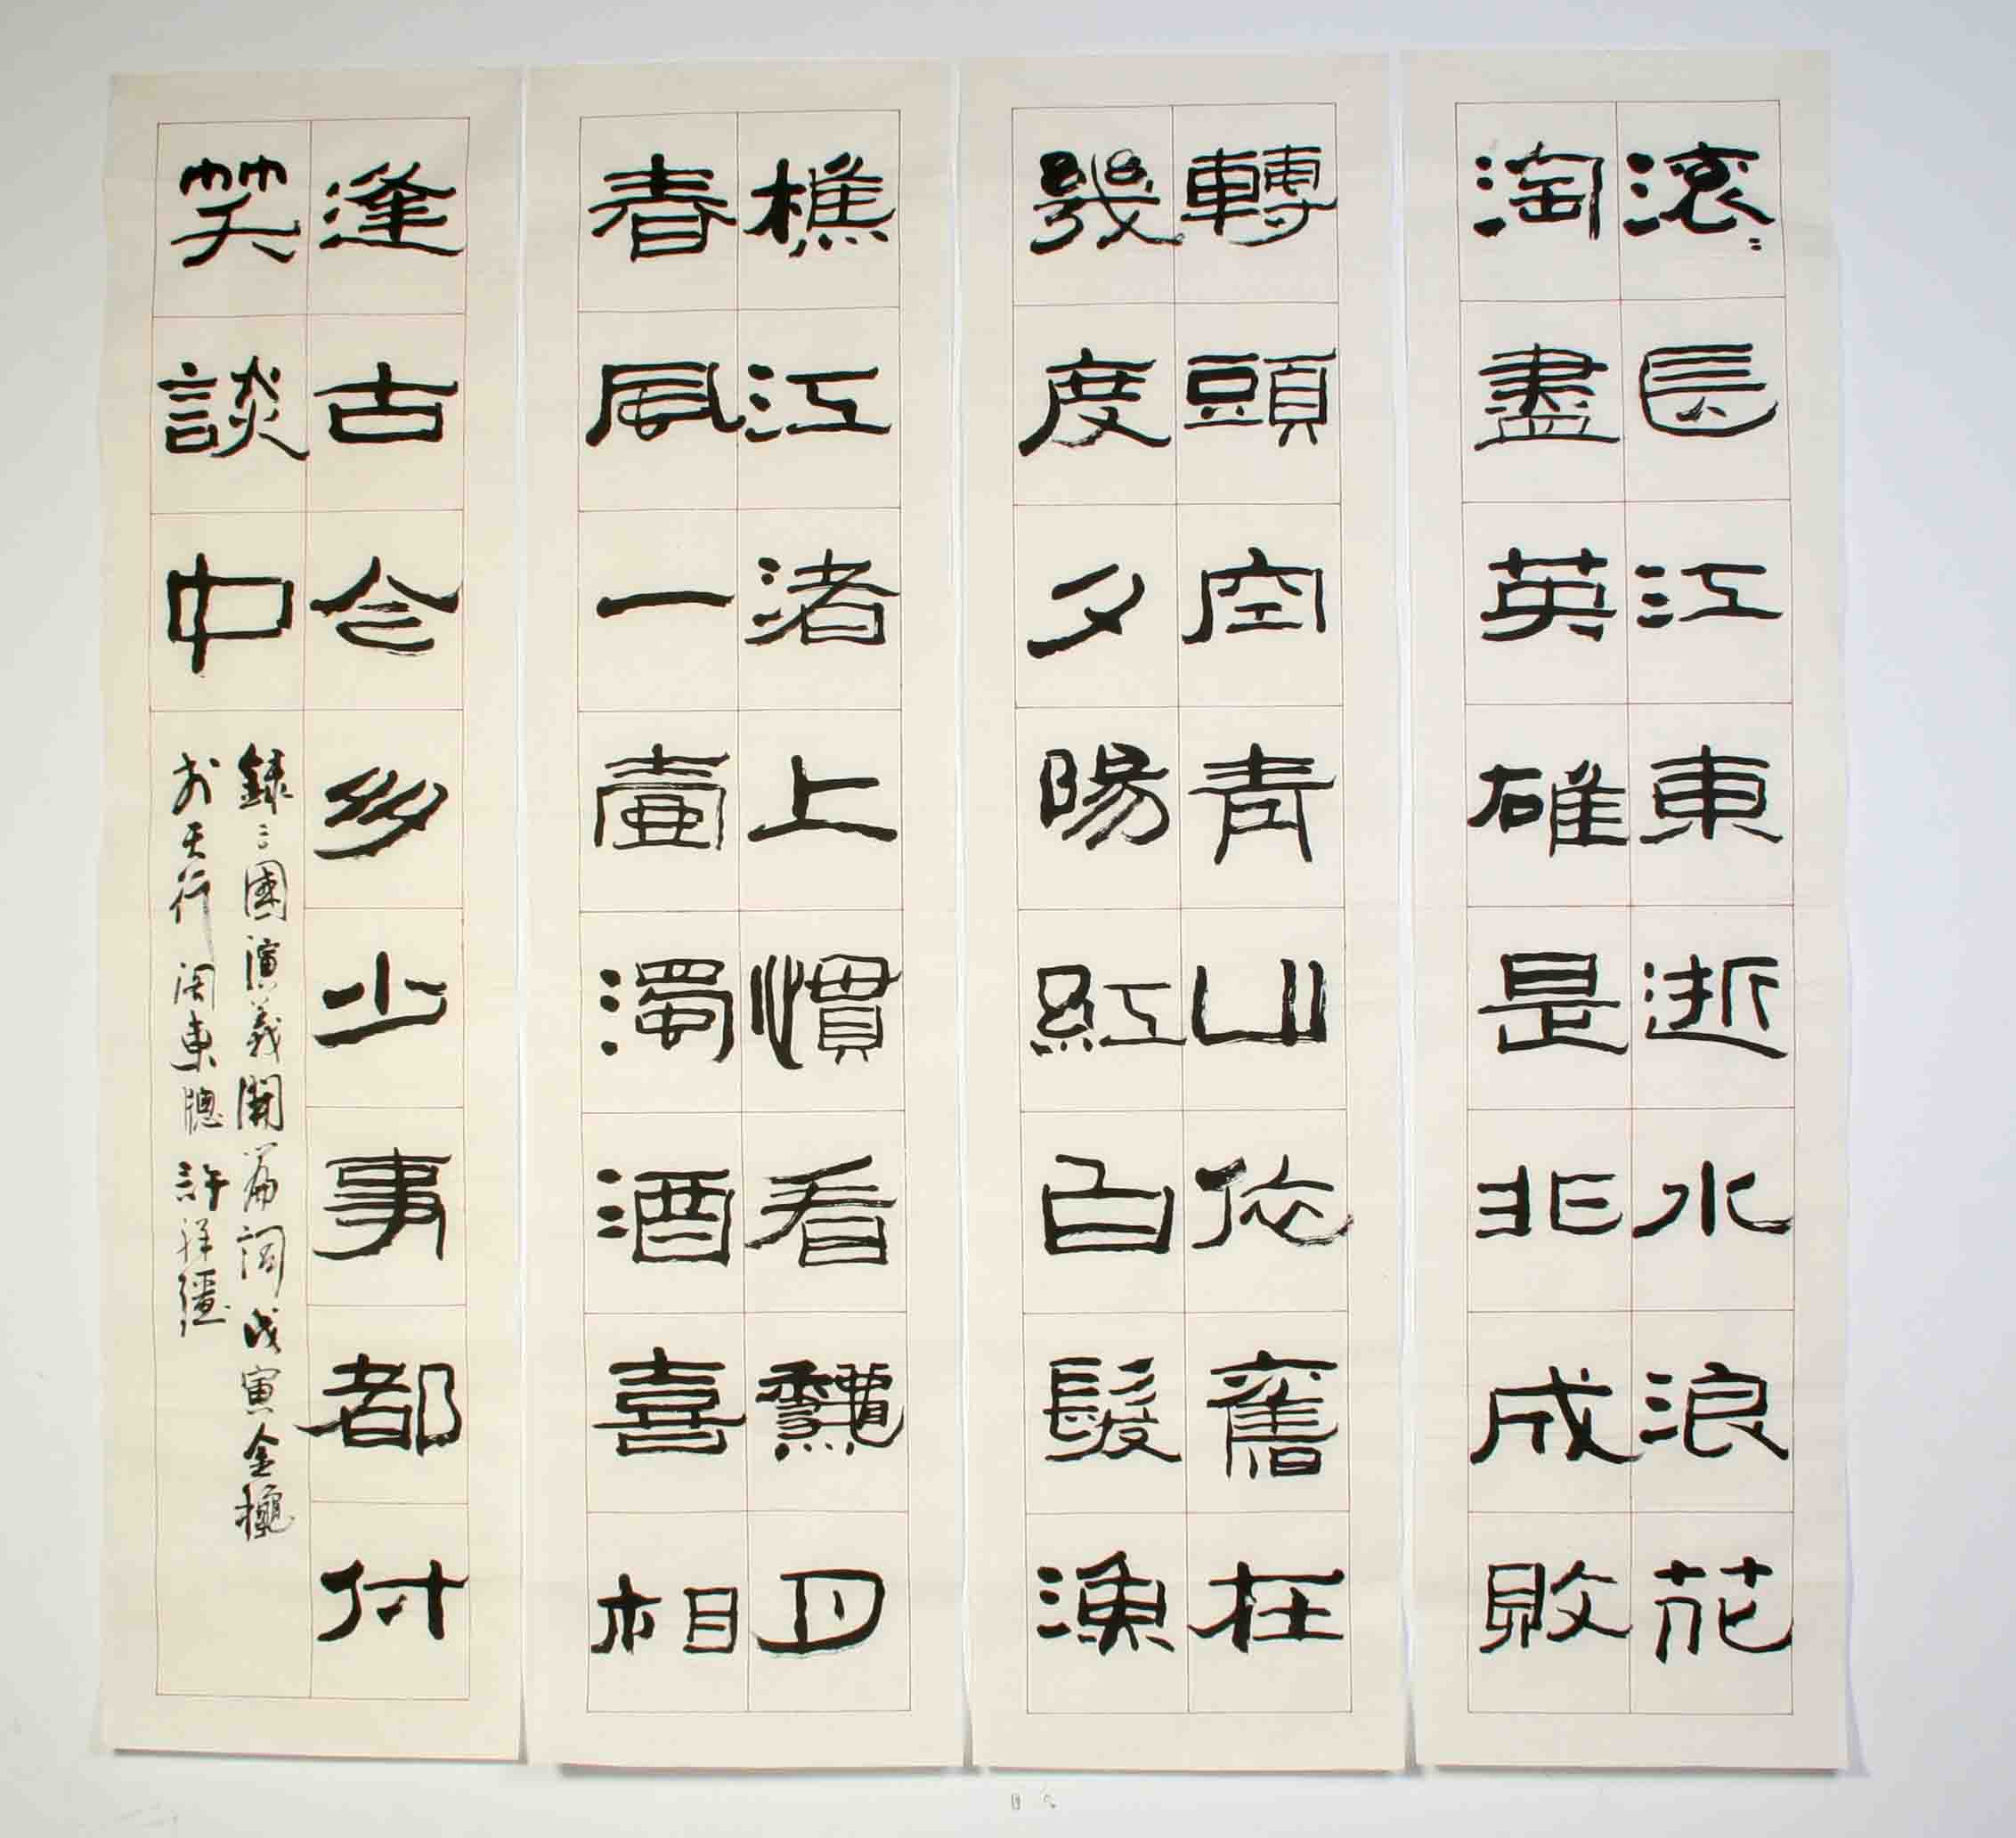 滾〻長江東逝水浪花
淘盡英雄是非成敗
轉頭空青山依舊在
幾度夕陽紅白髮漁
樵江渚上慣看龝月
春風一壺濁酒喜相
逢古今多少事都付
笑談中
錄三國演義開篇詞戊寅金龝
於天行閣東牕許祥